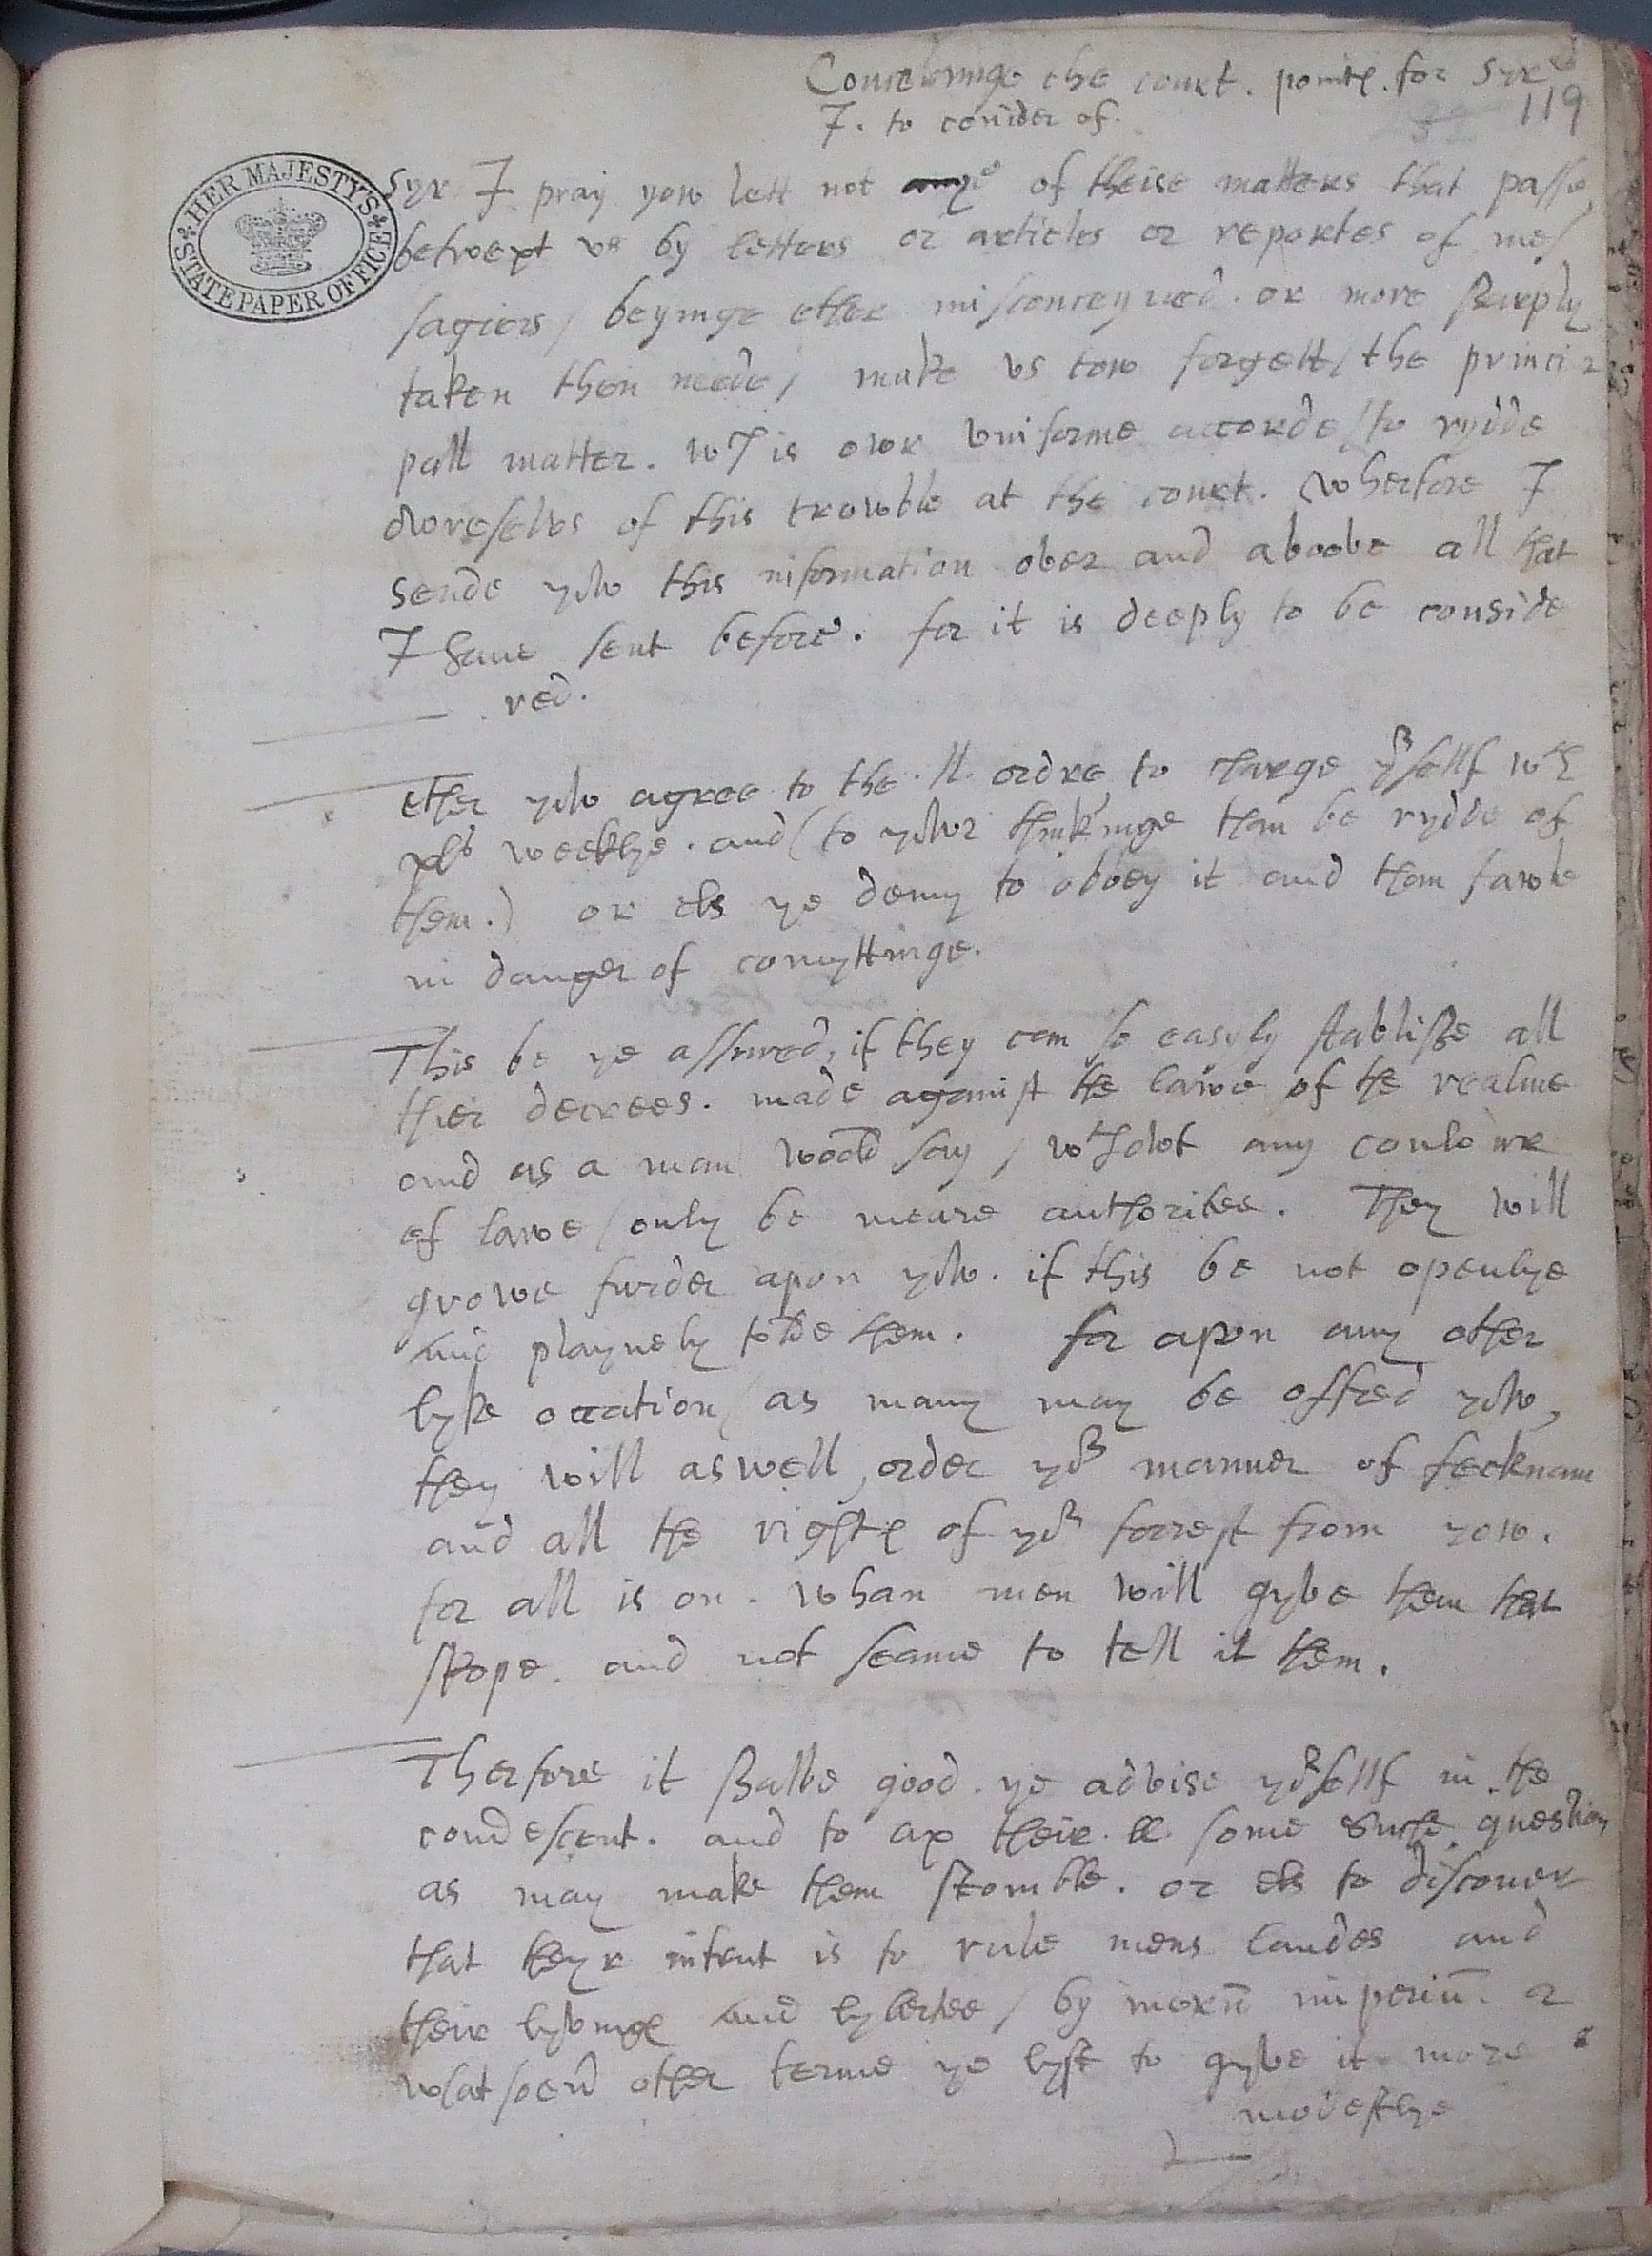 Concerninge the court. pointꝭ. for Syr
J. to consider of.
119
HER MAJESTY'S
STATE PAPER OFFICE
Syr I pray yow lett not anye of theise matters that passe,
betwext vs by letters or articles or reportes of mes
sagiers / beyinge ether misconceyued. or more sharply
taken then neede / make vs tow forgett / the princi
pall matter. wch is owr vniforme accorde / to rydde
owreselvs of this trowble at the court. Wherfore I
sende yow this information over and aboove all that
I haue sent before. for it is deeply to be conside
red.
Ether yow agree to the .ll. ordre, to charge yorsellf wth
xls weeklye. and (to yowr thinkinge than be rydde of
them.) or els ye deny to obbey it and than fawle
in danger of comyttinge.
This be ye assured, if they can so easyly stablishe all
ther decrees. made against the lawe of the realme
and as a man woold say / wthowt any coulowr
of lawe / only be meare authoritee. They will
growe furder apon yow. if this be not openlye
and playnely tolde them. for apon any other
lyke occation / as many may be offred yow,
they will aswell, order yor manner of fecknam
and all the rightꝭ of yor forrest from yow.
for all is on. whan men will gyve them that
skope. and not seame to tell it them.
Therfore it shalbe good. ye advise yorsellf in the
condescent. and to ax their .ll. some suche question
as may make them stomble. or els to discouer
that theyr intent is to rule mens landes and
their lyvingꝭ and lybertee / by merũ imperiũ. or
whatsoeũ other terme ye lyst to gyve it more
modestlye